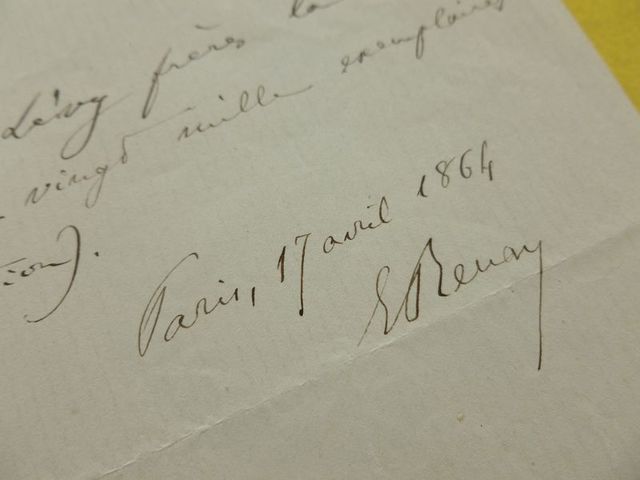 Lévy frères la
vingt mille exemplaires
tion).
Paris, 17 avril 1864
E Renan